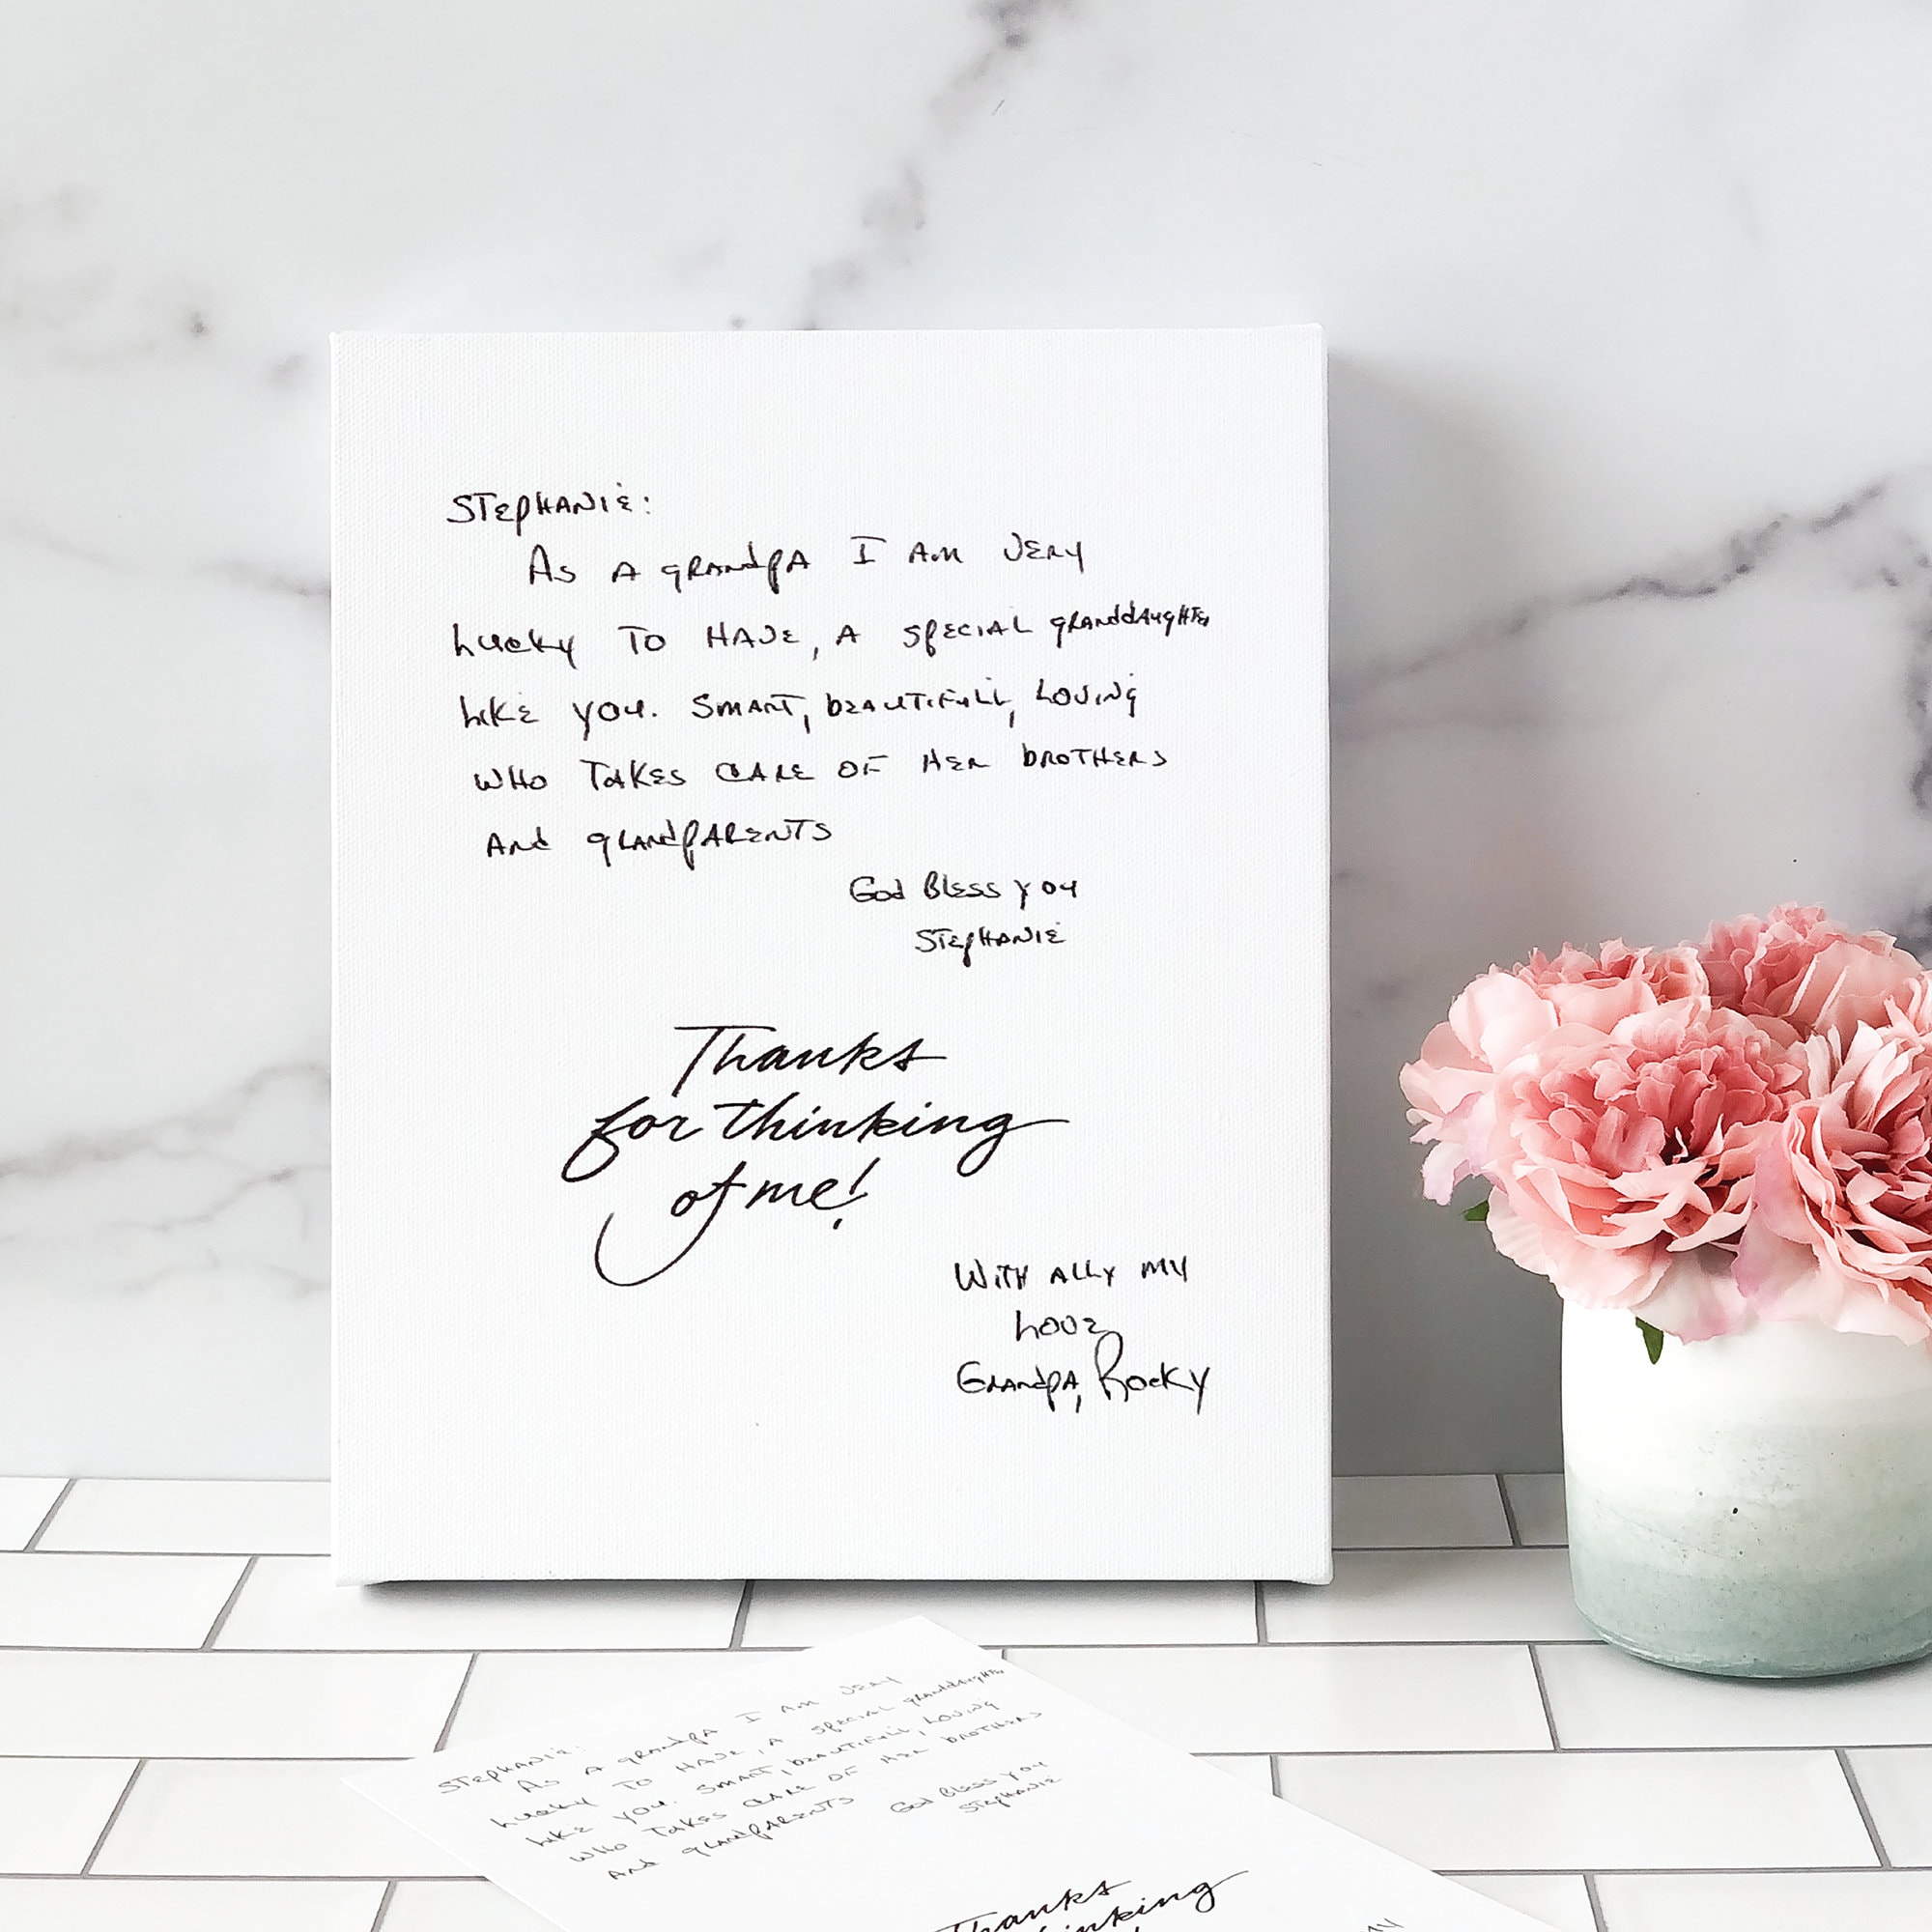 STEPHANIE:
As A grANdpA I AM VERY
Lucky TO HAVE, A SPECIAL grANddAugHTER
LIKE you. SMART, bEAUTIFULL, LOVINg
WHO TAKES CARE OF HER bROTHERS
ANd grANdpARENTS
God BLESS you
STEPHANIE
Thanks
for thinking
of me!
WITH ALLy MY
LOVE
GRANdpA, Rocky
STEPHANIE:
As A grANdpA I AM VERY
Lucky TO HAVE, A SPECIAL grANddAugHTER
LIKE you. SMART, bEAUTIFULL, LOVINg
WHO TAKES CARE OF HER bROTHERS
ANd grANdpARENTS
God BLESS you
STEPHANIE
Thanks
thinking
MY